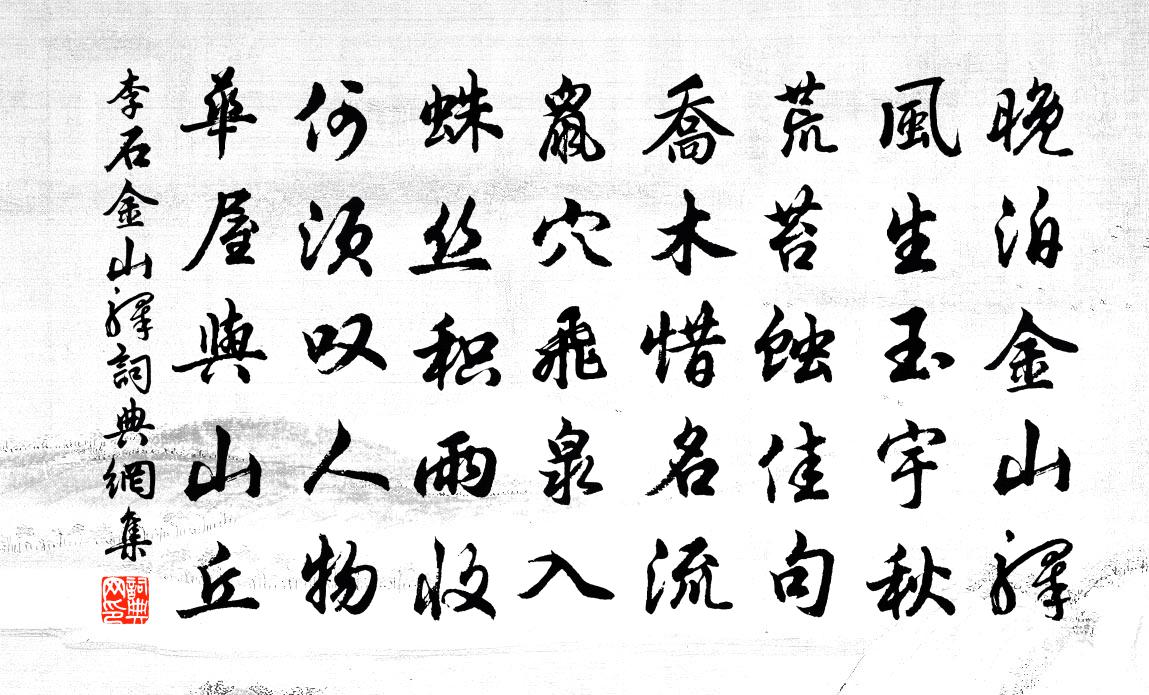 晚泊金山驛
風生玉宇秋
荒苔蝕佳句
喬木惜名流
鼠穴飛泉入
蛛丝积雨收
何須叹人物
華屋與山丘
李石金山驛詞典網集
詞典网印